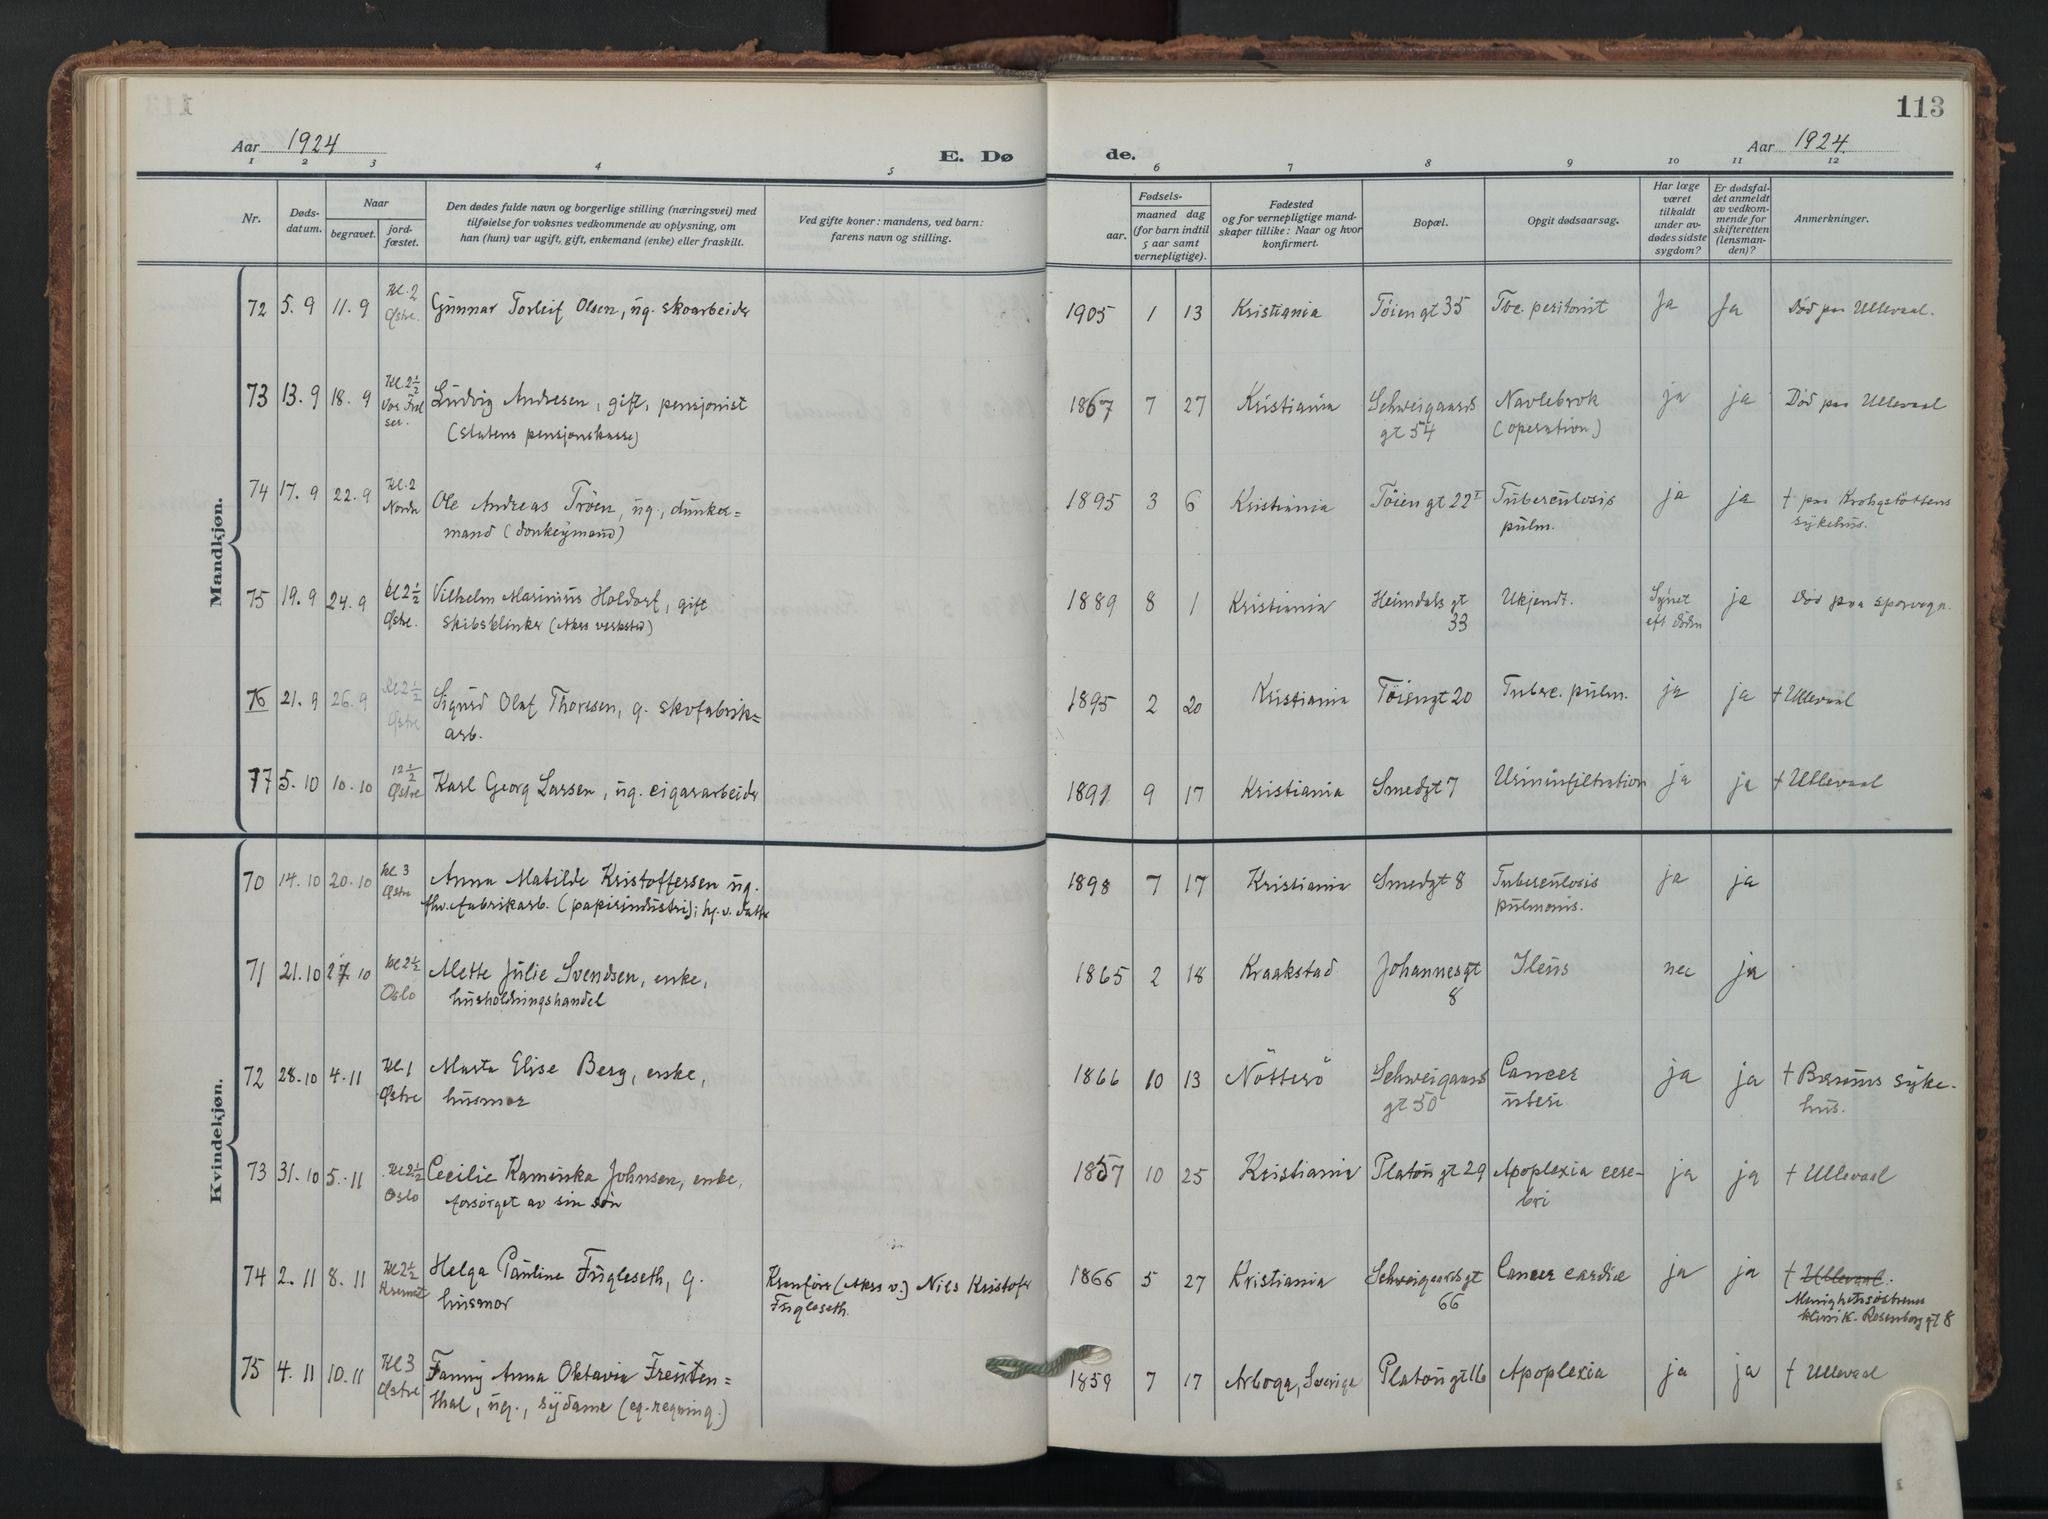 113
Aar 1924
E. Dø
de.
Aar 1924.
1 2 3 4 5 6 7 8 9 10 11 12
Nr.
Døds-
datum.
Naar
begravet.
jord-
fæstet.
Den dødes fulde navn og borgerlige stilling (næringsvei) med
tilføielse for voksnes vedkommende av oplysning, om
han (hun) var ugift, gift, enkemand (enke) eller fraskilt.
Ved gifte koner: mandens, ved barn:
farens navn og stilling.
Fødsels-
aar.
maaned dag
(for barn indtil
5 aar samt
vernepligtige).
Fødested
og for vernepligtige mand-
skaper tillike: Naar og hvor
konfirmert.
Bopæl.
Opgit dødsaarsag.
Har læge
været
tilkaldt
under av-
dødes sidste
sygdom?
Er dødsfal-
det anmeldt
av vedkom-
mende for
skifteretten
(lensman-
den)?
Anmerkninger.
Mandkjøn.
72 5.9 11.9 Kl. 2 Østre. Gunnar Torleif Olsen, ug. skoarbeider 1905 1 13 Kristiania Töiengt 35 Tbc. peritonit Ja Ja Död paa Ullevaal.
73 13.9 18.9 Kl. 2½ Vor Frel ser. Ludvig Andresen, gift, pensjonist 1867 7 27 Kristiania Schweigaards Navlebrok ja ja Död paa Ullevaal
(statens pensjonskasse) gt 54 (operation)
74 17.9 22.9 Kl. 2 Nordre Ole Andreas Tröen, ug., dunker= 1895 3 6 Kristiania Töiengt 22 I Tuberculosis ja ja † paa Krohgstöttens
mand (donkeymand) pulm. sykehus.
75 19.9 24.9 kl 2½ Østre. Vilhelm Marinius Holdorf, gift 1889 8 1 Kristiania Heimdals gt Ukjendt. Synet ja Död paa sporvogn.
skibsklinker (Akers verksted) 33 eft döden
76 21.9 26.9 Kl 2½ Østre Sigurd Olaf Thoresen, g. skofabrik= 1895 2 20 Kristiania Töiengt 20 Tuberc. pulm. ja ja † Ullevaal
arb.
77 5.10 10.10 12½ Østre Karl Georg Larsen, ug. cigararbeider 1891 9 17 Kristiania Smedgt 7 Urininfiltration ja ja † Ullevaal
Kvindekjøn.
70 14.10 20.10 kl 3 Østre Anna Matilde Kristoffersen ug. 1898 7 17 Kristiania Smedgt 8 Tuberculosis ja ja
fhv. fabrikarb. (papirindustri); hj. v. datter pulmonis.
71 21.10 27.10 kl 2½ Oslo Mette Julie Svendsen, enke, 1865 2 18 Kraakstad Johannesgt Ileus nei ja
husholdningshandel 8
72 28.10 4.11 Kl. 1 Østre Marta Elise Berg, enke, 1866 10 13 Nötterö Schweigaards Cancer ja ja † Bærums syke-
husmor gt 50 uteri hus.
73 31.10 5.11 Kl 2½ Oslo Cecilie Kaminka Johnsen, enke, 1857 10 25 Kristiania Platougt 29 Apoplexia cere- ja ja † Ullevaal
forsörget av sin sön bri
74 2.11 8.11 Kl 2½ Kremat Helga Pauline Fugleseth, g. Kranförer (Akers v.) Nils Kristofer 1866 5 27 Kristiania Schweigaardsgt Cancer cardiæ ja ja † Ullevaal.
husmor Fugleseth. 66 Menighetssöstrenes
klinik. Rosenborggt 8
75 4.11 10.11 Kl 3 Østre Fanny Anna Oktavia Freuten= 1859 7 17 Arboga, Sverige Platougt 16 Apoplexia ja ja † Ullevaal
thal, ug., sydame (eg. regning.)